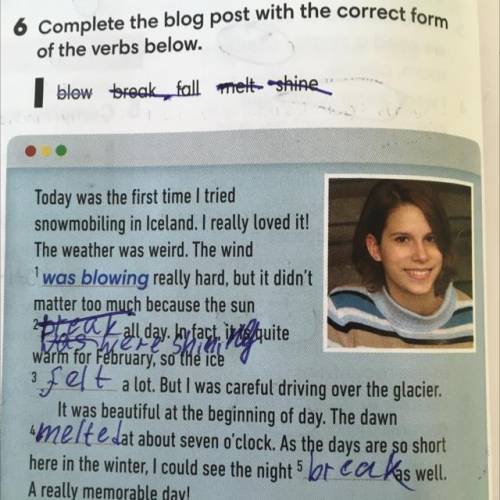 6 Complete the blog post with the correct form
of the verbs below.
blow break fall melt shine
Today was the first time I tried
snowmobiling in Iceland. I really loved it!
The weather was weird. The wind
1 was blowing really hard, but it didn't
matter too much because the sun
2 break all day. In fact, it quite
was were shining
warm for February, so the ice
3 felt a lot. But I was careful driving over the glacier.
It was beautiful at the beginning of day. The dawn
4 melted at about seven o'clock. As the days are so short
here in the winter, I could see the night 5 break as well.
A really memorable day!